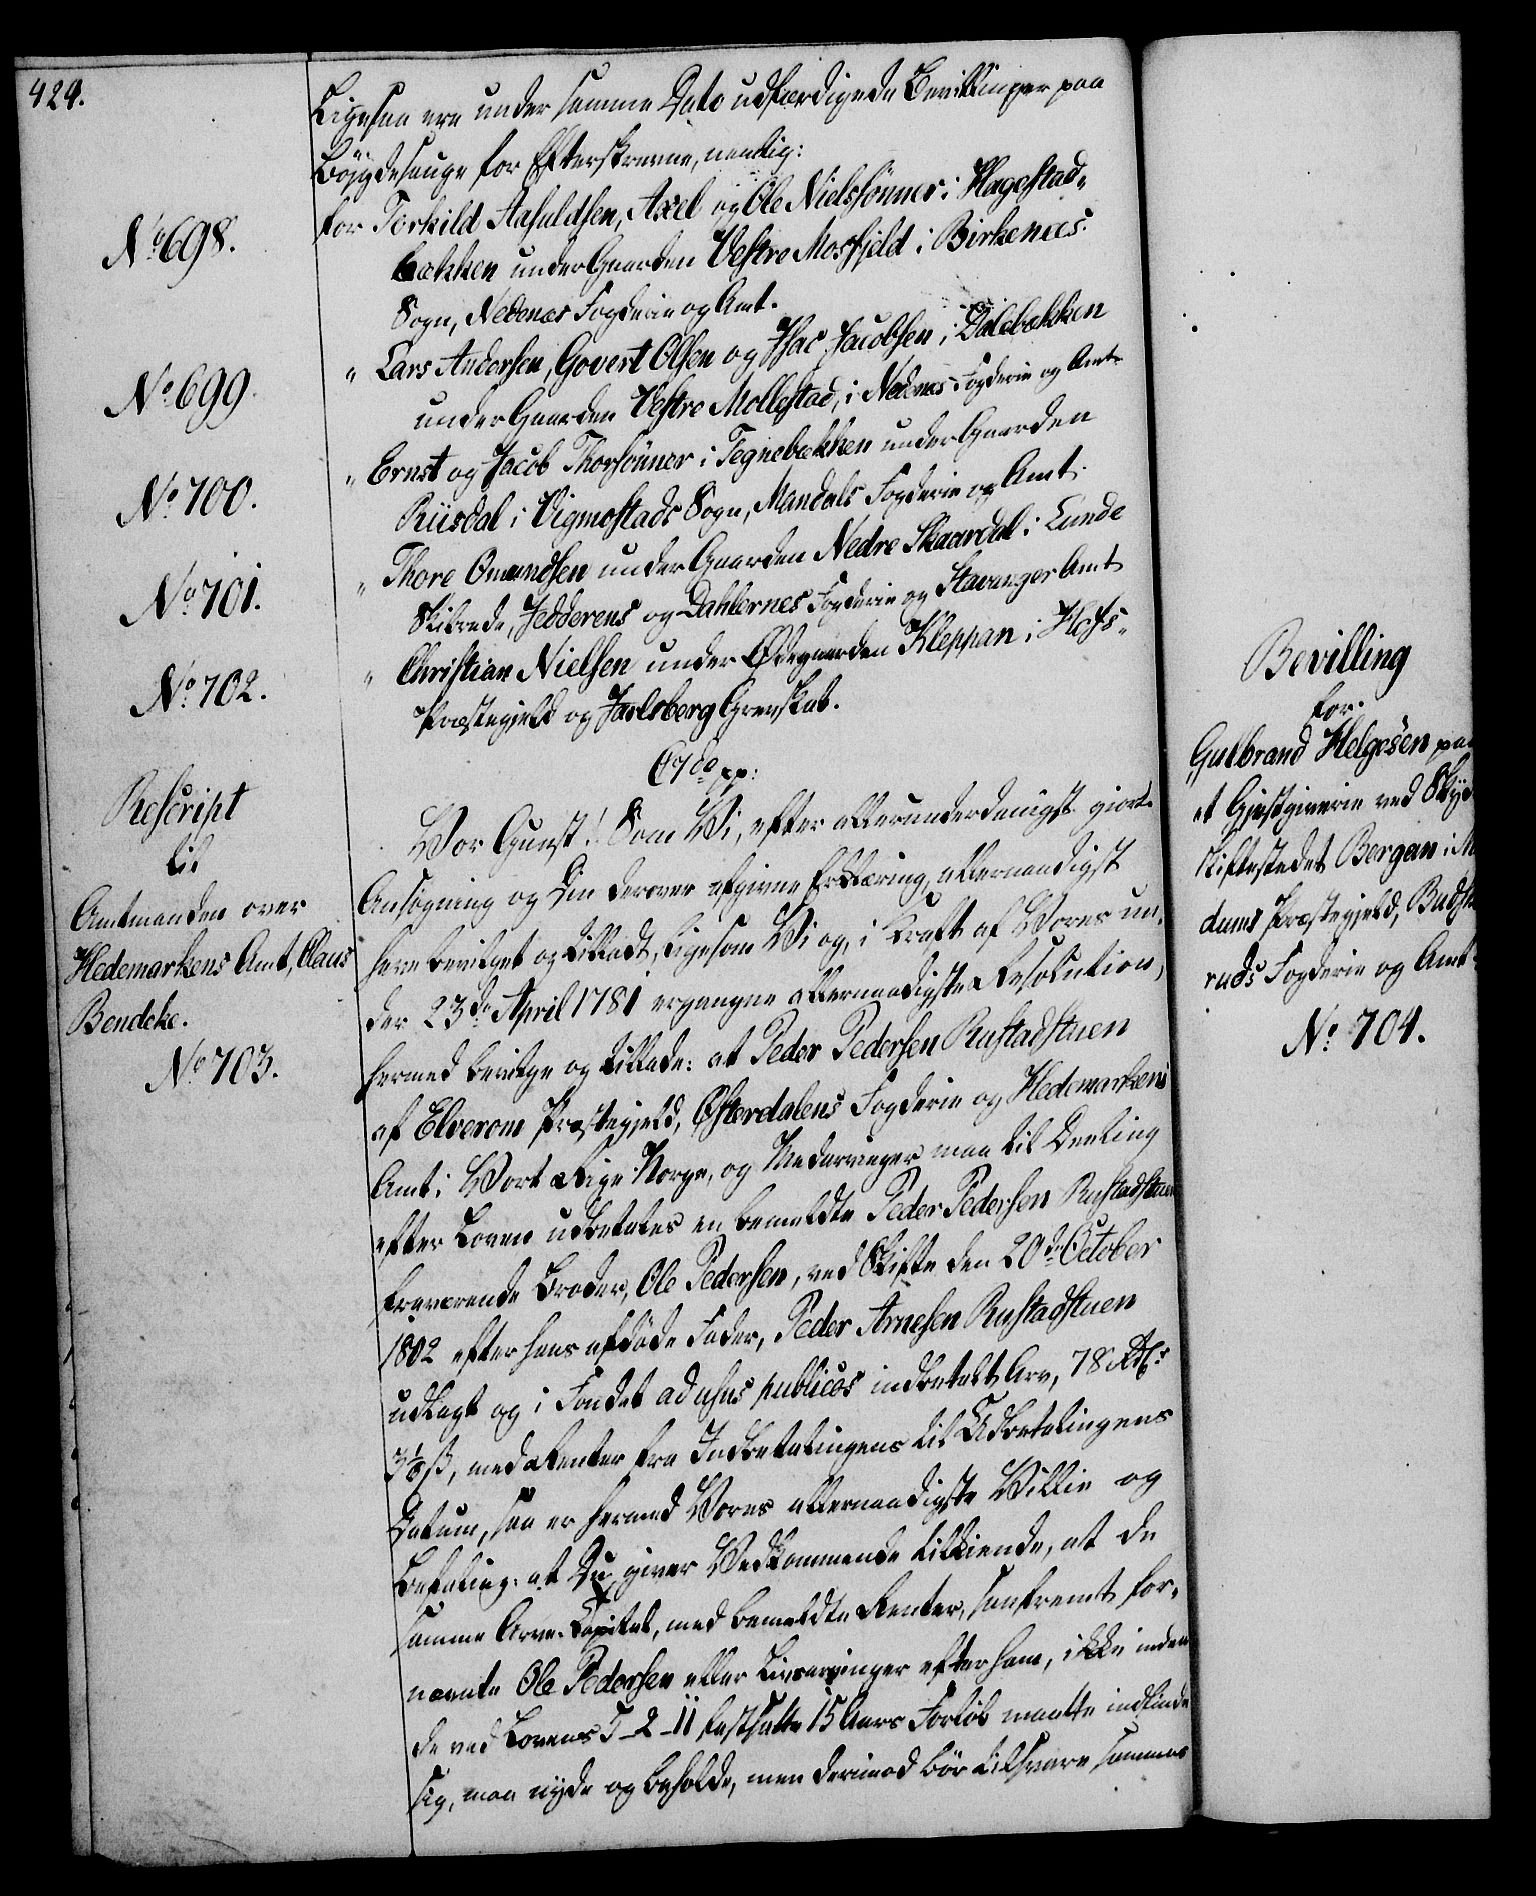 424.
Ligesaa ere under samme Dato udfærdigede Bevillinger paa
Böÿgdesauge for Efterskrevne, nemlig:
No 698.
for Torkild Aasuldsen, Axel og Ole Nielssönner i Hagestad-
bækken under Gaarden Vestre Mosfjeld i Birkenæs
Sogn, Nedenæs Fogderie og Amt.
No 699.
" Lars Andersen, Govert Olsen og Isac Jacobsen i Dalebækken
under Gaarden Vestre Mollestad, i Nedenæs Fogderie og Amt
No 700.
" Ernst og Jacob Thorsönner i Tegnebækken under Gaarden
Riisdal i Vigmostads Sogn, Mandals Fogderie og Amt.
No 701.
" Thore Omundsen under Gaarden Nedre Skaardal i Lunde
Skibrede, Jedderens og Dahlernes Fogderie og Stavanger Amt
No 702.
" Christian Nielsen under Ödegaarden Kleppan i Hofs-
Præstegjeld og Jarlsberg Grevskab.
C 7de pp:
Rescript
til
Amtmanden over
Hedemarkens Amt, Claus
Bendeke.
No 703.
Vor Gunst! Som Vi, efter allerunderdanigst giort
Ansögning og Din derover afgivne Erklæring, allernaadigst
have bevilget og tilladt, ligesom Vi og, i Kraft af Vores un-
der 23de April 1781 ergangne allernaadigste Resolution,
hermed bevilge og tillade: at Peder Pedersen Rustadstuen
af Elverom Præstegjeld, Österdalens Fogderie og Hedemarkens
Amt i Vort Rige Norge, og Medarvinger maa til Deeling
efter Loven udbetales en bemeldte Peder Pedersen Rustadstuen
fraværende Broder, Ole Pedersen, ved Skifte den 20de October
1802 efter hans afdöde Fader, Peder Arnesen Rustadstuen
udlagt og i Fondet ad usus publicos indbetalt Arv, 78 Rdlr
3 1/8 ß, med Renter fra Indbetalingens til Udbetalingens
Datum, saa er hermed Vores allernaadigste Villie og
Befaling: at Du giver Vedkommende tilkiende, at de
samme Arve-Capital, med bemeldte Renter, saafremt for-
nævnte Ole Pedersen eller Livsarvinger efter ham, ikke inden
de ved Lovens 5-2-11 fastsatte 15 Aars Forlöb maatte indfinde
sig, maa nyde og beholde, men derimod bör tilsvare samme
Bevilling
for
Gulbrand Helgesen paa
et Gjestgiverie ved Skyd
skiftestedet Bergan i M
dums Præstegjeld, Budsk
ruds Fogderie og Amt.
No 704.